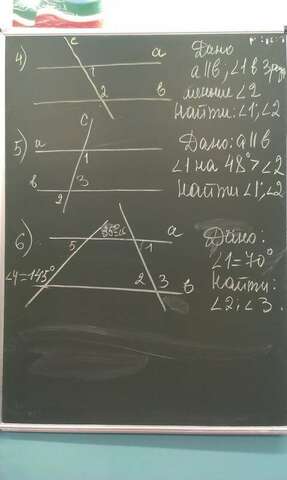 4)
c
a
1
2
в
Дано
a||в; ∠1 в 3 раза
меньше ∠2
Найти: ∠1; ∠2
5)
c
a
1
в
3
2
Дано: a||в
∠1 на 48° > ∠2
Найти ∠1; ∠2
6)
a
5
1
∠4=145°
2 3
в
Дано:
∠1=70°
Найти:
∠2; ∠3.